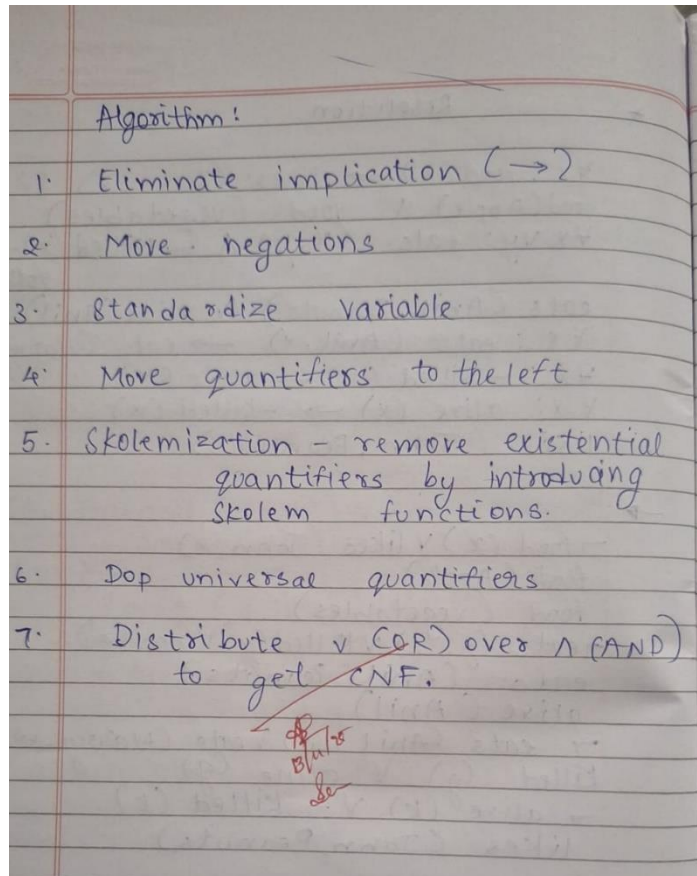 Algorithm:
1. Eliminate implication (→)
2. Move negations
3. Standardize variable
4. Move quantifiers to the left
5. Skolemization - remove existential
quantifiers by introducing
skolem functions.
6. Dop universal quantifiers
7. Distribute ∨ (OR) over ∧ (AND)
to get CNF.